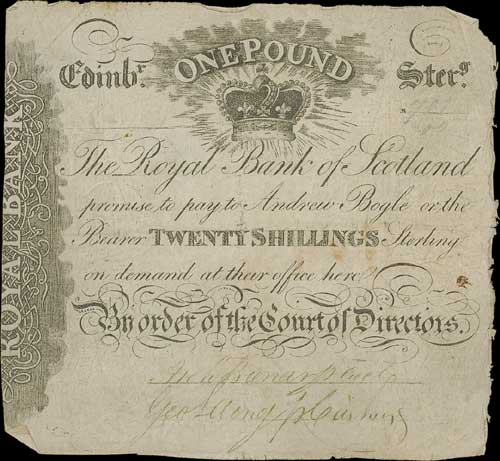 ONE POUND
Edinbr. Sterg.
The Royal Bank of Scotland
promise to pay to Andrew Bogle or the
Bearer TWENTY SHILLINGS Sterling
on demand at their office here
By order of the Court of Directors.
Geo
ROYAL BANK